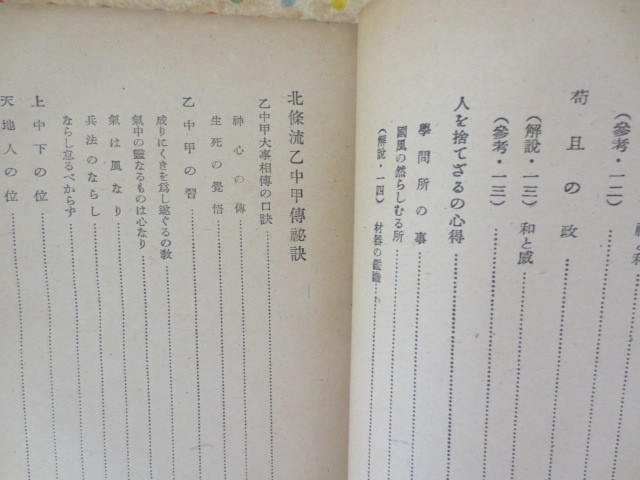 (參考・一二)
苟且の政
(解說・一三) 和と威
(參考・一三)
人を捨てざるの心得
學問所の事
國風の然らしむる所
(解說・一四) 材器の鑑識
北條流乙中甲傳祕訣
乙中甲大事相傳の口訣
神心の傳
生死の覺悟
乙中甲の習
成りにくきを爲し遂ぐるの敎
氣中の靈なるものは心なり
氣は風なり
兵法のならし
ならし怠るべからず
上中下の位
天地人の位